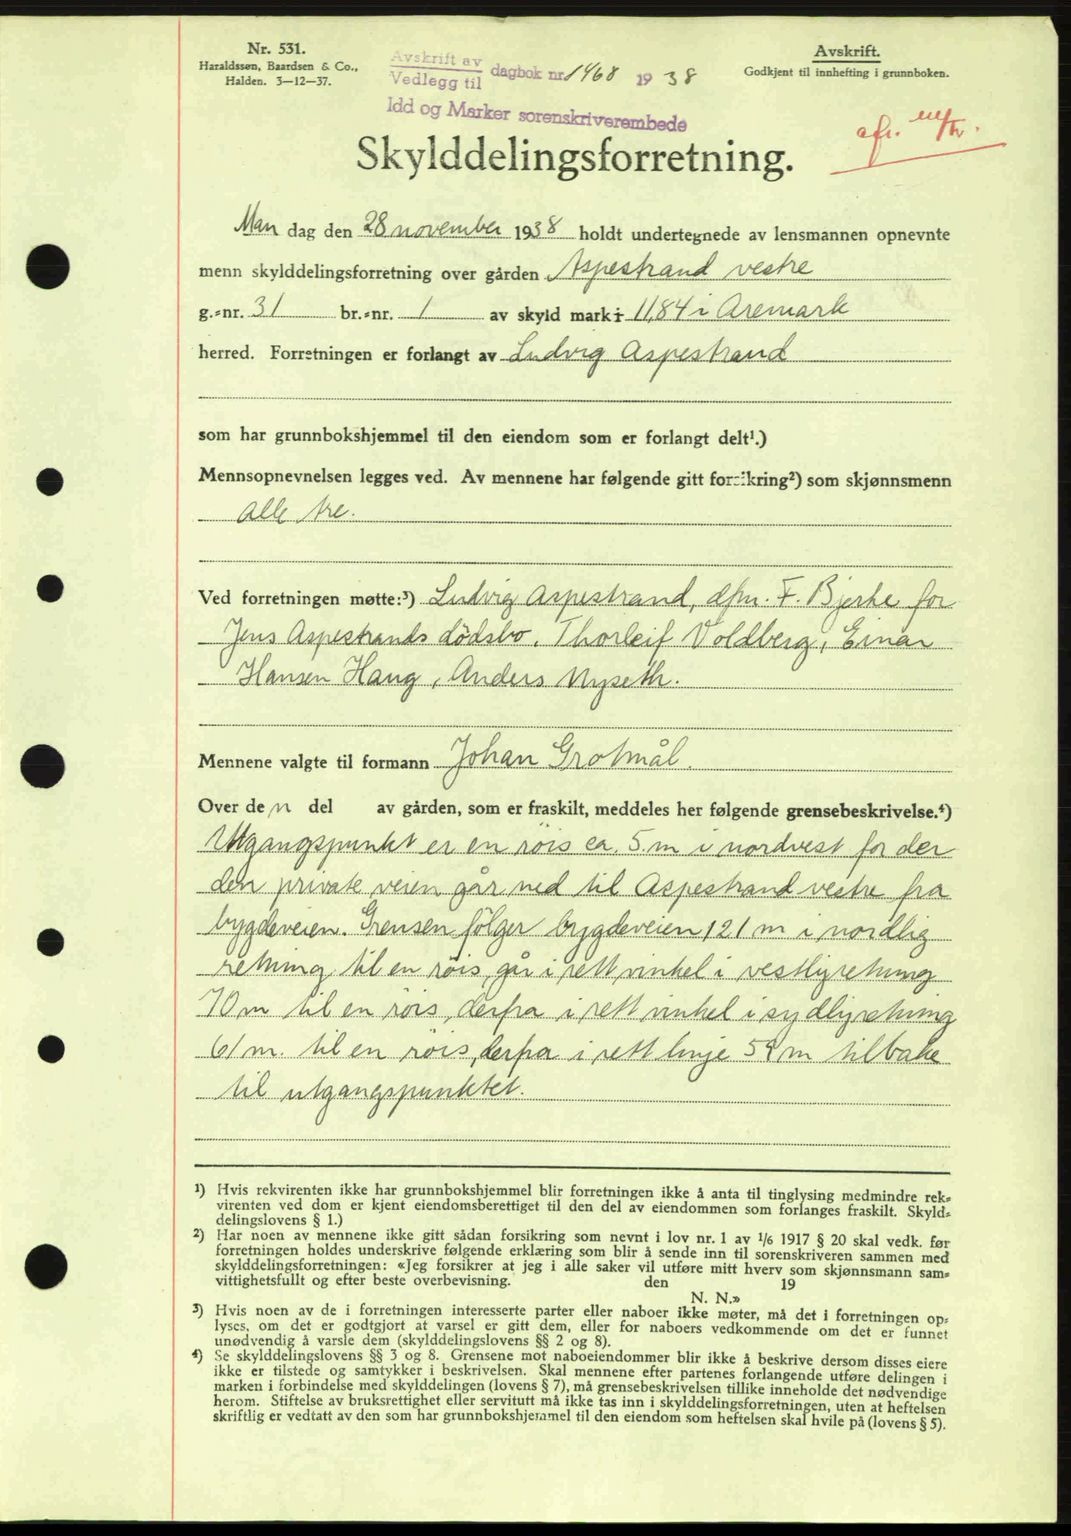 Nr. 531.
Haraldssøn, Baardsen & Co.,
Halden. 3—12—37.
Avskrift av
Vedlegg til dagbok nr. 1468 1938
Idd og Marker sorenskriverembede
Avskrift.
Godkjent til innhefting i grunnboken.
afr.
Skylddelingsforretning.
Man dag den 28 november 1938 holdt undertegnede av lensmannen opnevnte
menn skylddelingsforretning over gården Aspestrand vestre
g.=nr. 31 br.=nr. 1 av skyld mark 11,84 i Aremark
herred. Forretningen er forlangt av Ludvig Aspestrand
som har grunnbokshjemmel til den eiendom som er forlangt delt¹.)
Mennsopnevnelsen legges ved. Av mennene har følgende gitt forsikring²) som skjønnsmenn
alle tre.
Ved forretningen møtte:³) Ludvig Aspestrand, dfm. F. Bjerke for
Jens Aspestrands dödsbo, Thorleif Voldberg, Einar
Hansen Haug, Anders Nyseth.
Mennene valgte til formann Johan Grotmål.
Over den del av gården, som er fraskilt, meddeles her følgende grensebeskrivelse.⁴)
Utgangspunkt er en röis ca. 5 m i nordvest for der
den private veien går ned til Aspestrand vestre fra
bygdeveien. Grensen fölger bygdeveien 121 m i nordlig
retning til en röis, går i rett vinkel i vestlig retning
70 m til en röis, derfra i rett vinkel i sydlig retning
61 m. til en röis, derfra i rett linje 59 m tilbake
til utgangspunktet.
¹) Hvis rekvirenten ikke har grunnbokshjemmel blir forretningen ikke å anta til tinglysing medmindre rek=
virenten ved dom er kjent eiendomsberettiget til den del av eiendommen som forlanges fraskilt. Skyld=
delingslovens § 1.)
²) Har noen av mennene ikke gitt sådan forsikring som nevnt i lov nr. 1 av 1/6 1917 § 20 skal vedk. før
forretningen holdes underskrive følgende erklæring som blir å sende inn til sorenskriveren sammen med
skylddelingsforretningen: «Jeg forsikrer at jeg i alle saker vil utføre mitt hverv som skjønnsmann sam=
vittighetsfullt og efter beste overbevisning. den 19
N. N.»
³) Hvis noen av de i forretningen interesserte parter eller naboer ikke møter, må det i forretningen op=
lyses, om det er godtgjort at varsel er gitt dem, eller for naboers vedkommende om det er funnet
unødvendig å varsle dem (skylddelingslovens §§ 2 og 8).
⁴) Se skylddelingslovens §§ 3 og 8. Grensene mot naboeiendommer blir ikke å beskrive dersom disses eiere
ikke er tilstede og samtykker i beskrivelsen. Skal mennene efter partenes forlangende utføre delingen i
marken i forbindelse med skylddelingen (lovens § 7), må grensebeskrivelsen tillike inneholde det nødvendige
herom. Stiftelse av bruksrettighet eller servitutt må ikke tas inn i skylddelingsforretningen, uten at heftelsen
skriftlig er vedtatt av den som har grunnbokshjemmel til den eiendom som heftelsen skal hvile på (lovens § 5).